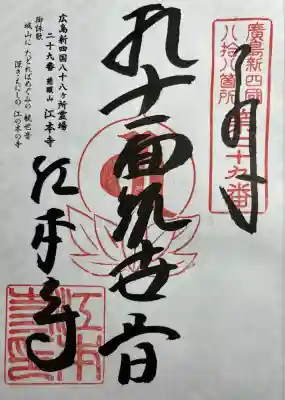 廣島新四国
八拾八箇所
第二十九番
奉拝
十一面観世音
江本寺
広島新四国八十八ヶ所霊場
二十九番 慈願山 江本寺
御詠歌
城山に たどればめぐみの 観世音
深きえにしの 江の本の寺